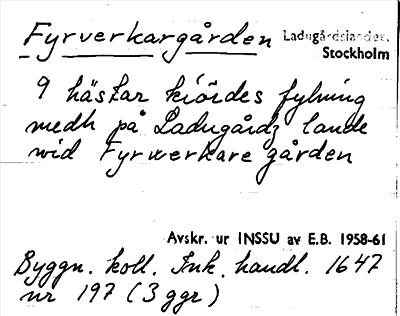 Fyrverkargården Ladugårdslandet,
Stockholm
9 hästar kiördes fylning
medh på Ladugårdz lande
wid Fyrwerkare gården
Avskr. ur INSSU av E.B. 1958-61
Byggn. koll. Ink. handl. 1647
nr 197 (3 ggr)